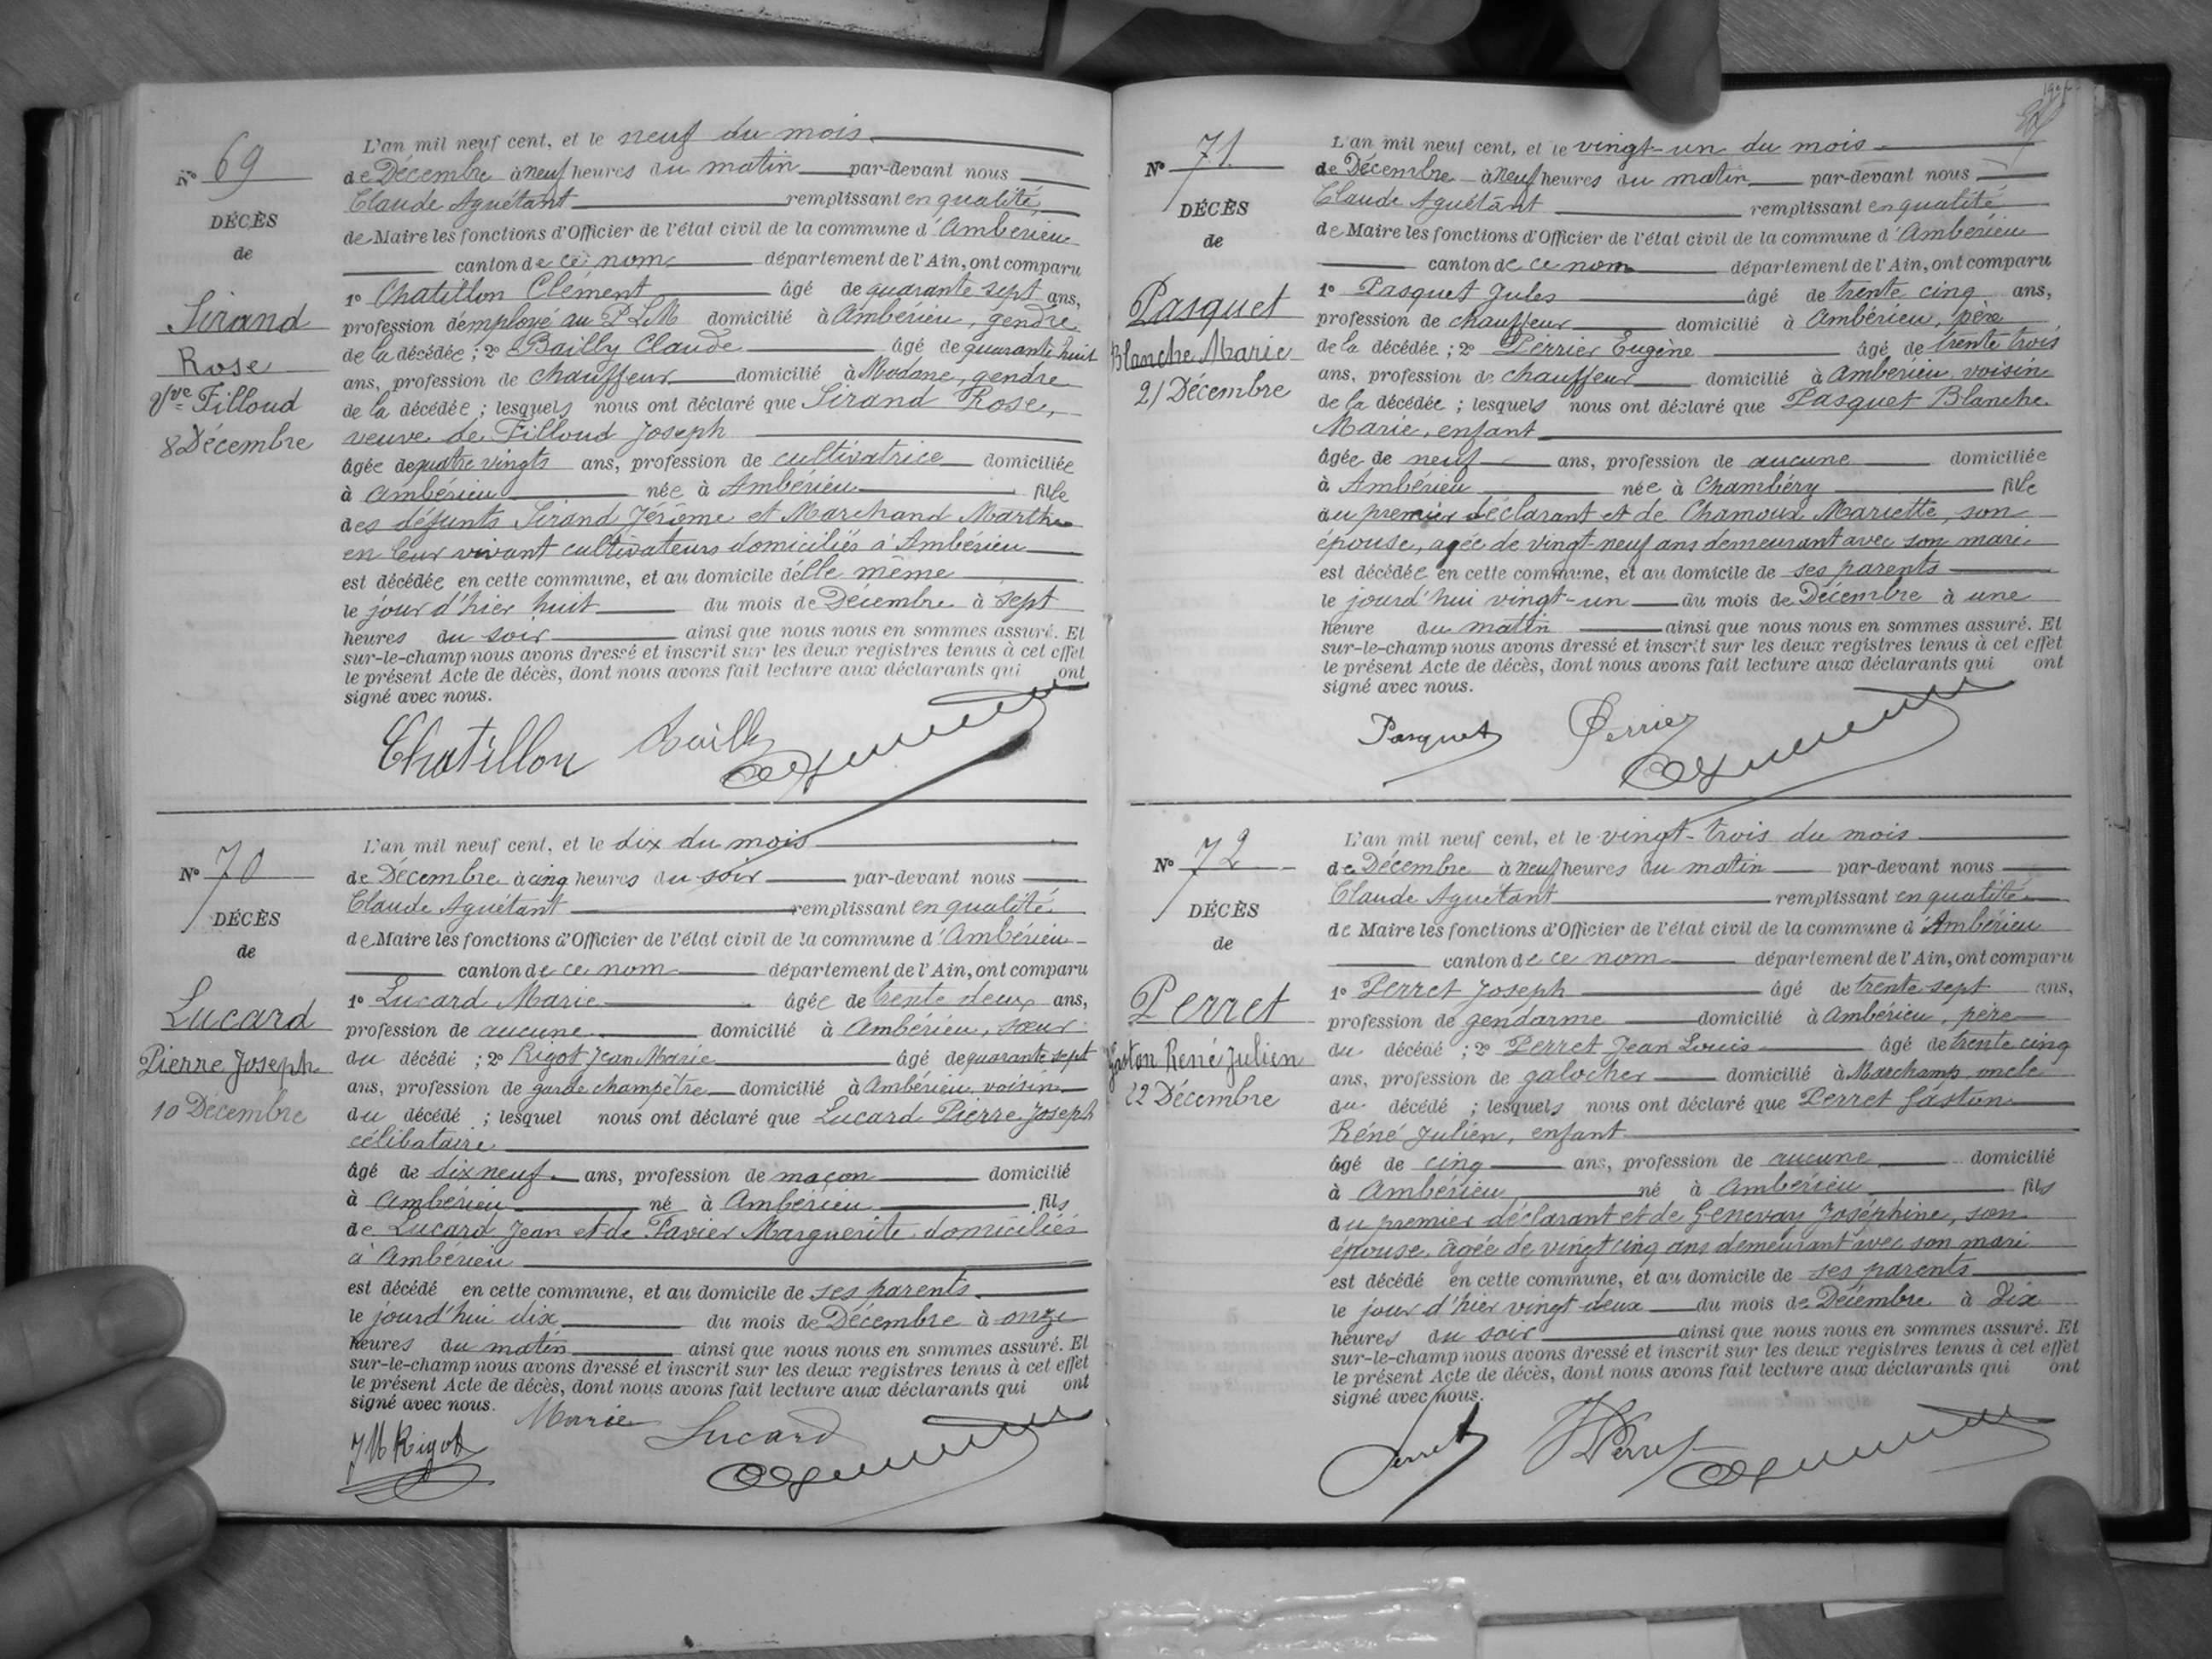 Nº 69
DÉCÈS
de
Sirand
Rose
Vve Filloud
8 Décembre
L'an mil neuf cent, et le neuf du mois
de Décembre à neuf heures du matin par-devant nous
Claude Aguétant remplissant en qualité
de Maire les fonctions d'Officier de l'état civil de la commune d'Ambérieu
canton de ce nom département de l'Ain, ont comparu
1º Chatillon Clément âgé de quarante sept ans,
profession d'employé au P L M domicilié à Ambérieu, gendre
de la décédée ; 2º Bailly Claude âgé de quarante huit
ans, profession de chauffeur domicilié à Modane, gendre
de la décédée ; lesquels nous ont déclaré que Sirand Rose,
veuve de Filloud Joseph
âgée de quatre vingts ans, profession de cultivatrice domiciliée
à Ambérieu née à Ambérieu fille
des défunts Sirand Jérôme et Marchand Marthe
en leur vivant cultivateurs domiciliés à Ambérieu
est décédée en cette commune, et au domicile d'elle même
le jour d'hier huit du mois de Décembre à sept
heures du soir ainsi que nous nous en sommes assuré. Et
sur-le-champ nous avons dressé et inscrit sur les deux registres tenus à cet effet
le présent Acte de décès, dont nous avons fait lecture aux déclarants qui ont
signé avec nous.
Chatillon Bailly
Nº 70
DÉCÈS
de
Lucard
Pierre Joseph
10 Décembre
L'an mil neuf cent, et le dix du mois
de Décembre à cinq heures du soir par-devant nous
Claude Aguétant remplissant en qualité
de Maire les fonctions d'Officier de l'état civil de la commune d'Ambérieu
canton de ce nom département de l'Ain, ont comparu
1º Lucard Marie âgée de trente deux ans,
profession de aucune domicilié à Ambérieu, sœur
du décédé ; 2º Rigot Jean Marie âgé de quarante sept
ans, profession de garde champêtre domicilié à Ambérieu voisin
du décédé ; lesquel nous ont déclaré que Lucard Pierre Joseph
célibataire
âgé de dix neuf ans, profession de maçon domicilié
à Ambérieu né à Ambérieu fils
de Lucard Jean et de Favier Marguerite domiciliés
à Ambérieu
est décédé en cette commune, et au domicile de ses parents
le jourd'hui dix du mois de Décembre à onze
heures du matin ainsi que nous nous en sommes assuré. Et
sur-le-champ nous avons dressé et inscrit sur les deux registres tenus à cet effet
le présent Acte de décès, dont nous avons fait lecture aux déclarants qui ont
signé avec nous.
JM Rigot Marie Lucard
Nº 71
DÉCÈS
de
Pasquet
Blanche Marie
21 Décembre
L'an mil neuf cent, et le vingt-un du mois
de Décembre à neuf heures du matin par-devant nous
Claude Aguétant remplissant en qualité
de Maire les fonctions d'Officier de l'état civil de la commune d'Ambérieu
canton de ce nom département de l'Ain, ont comparu
1º Pasquet Jules âgé de trente cinq ans,
profession de chauffeur domicilié à Ambérieu, père
de la décédée ; 2º Perrier Eugène âgé de trente trois
ans, profession de chauffeur domicilié à Ambérieu voisin
de la décédée ; lesquels nous ont déclaré que Pasquet Blanche
Marie, enfant
âgée de neuf ans, profession de aucune domiciliée
à Ambérieu née à Chambéry fille
du premier déclarant et de Chamoux Mariette, son
épouse, agée de vingt-neuf ans demeurant avec son mari
est décédée en cette commune, et au domicile de ses parents
le jourd'hui vingt-un du mois de Décembre à une
heure du matin ainsi que nous nous en sommes assuré. Et
sur-le-champ nous avons dressé et inscrit sur les deux registres tenus à cet effet
le présent Acte de décès, dont nous avons fait lecture aux déclarants qui ont
signé avec nous.
Pasquet Perrier
Nº 72
DÉCÈS
de
Perret
Gaston René Julien
22 Décembre
L'an mil neuf cent, et le vingt-trois du mois
de Décembre à neuf heures du matin par-devant nous
Claude Aguétant remplissant en qualité
de Maire les fonctions d'Officier de l'état civil de la commune d'Ambérieu
canton de ce nom département de l'Ain, ont comparu
1º Perret Joseph âgé de trente sept ans,
profession de gendarme domicilié à Ambérieu, père
du décédé ; 2º Perret Jean Louis âgé de trente cinq
ans, profession de galocher domicilié à Marchamp oncle
du décédé ; lesquels nous ont déclaré que Perret Gaston
Réné Julien, enfant
âgé de cinq ans, profession de aucune domicilié
à Ambérieu né à Ambérieu fils
du premier déclarant et de Genevay Joséphine, son
épouse, âgée de vingt cinq ans demeurant avec son mari
est décédé en cette commune, et au domicile de ses parents
le jour d'hier vingt deux du mois de Décembre à dix
heures du soir ainsi que nous nous en sommes assuré. Et
sur-le-champ nous avons dressé et inscrit sur les deux registres tenus à cet effet
le présent Acte de décès, dont nous avons fait lecture aux déclarants qui ont
signé avec nous.
Perret JL Perret